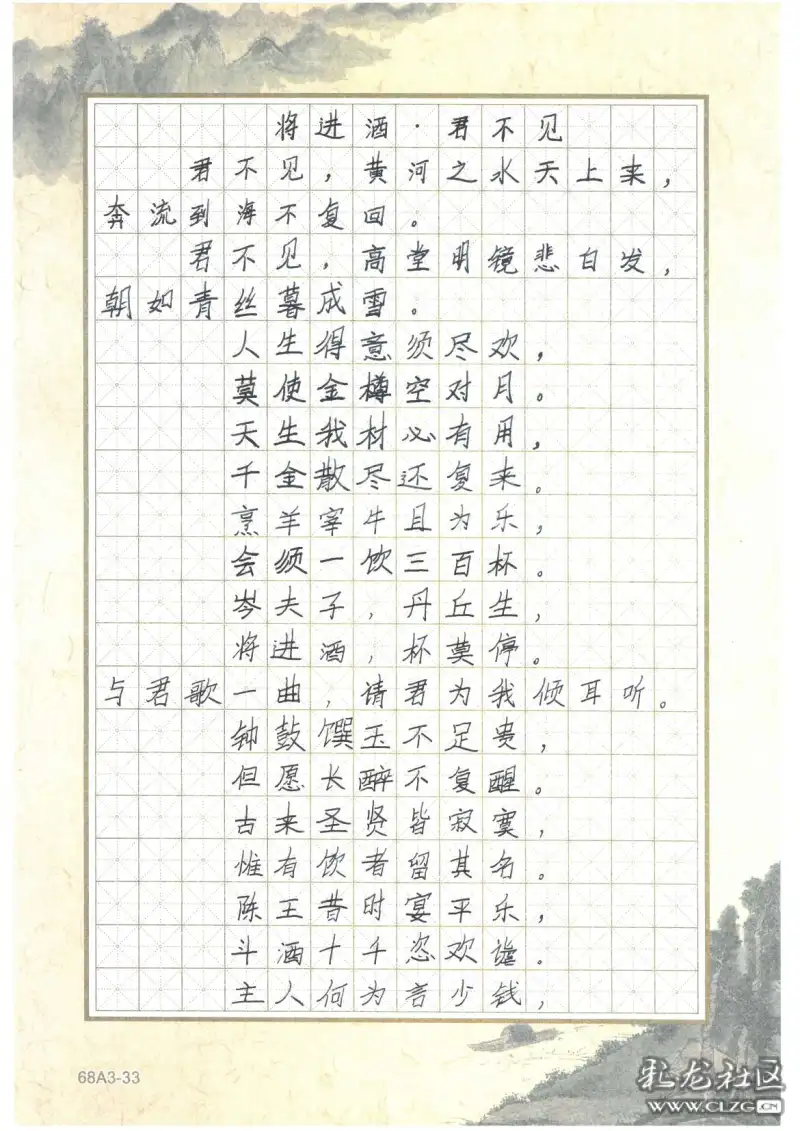 将进酒·君不见
君不见，黄河之水天上来，
奔流到海不复回。
君不见，高堂明镜悲白发，
朝如青丝暮成雪。
人生得意须尽欢，
莫使金樽空对月。
天生我材必有用，
千金散尽还复来。
烹羊宰牛且为乐，
会须一饮三百杯。
岑夫子，丹丘生，
将进酒，杯莫停。
与君歌一曲，请君为我倾耳听。
钟鼓馔玉不足贵，
但愿长醉不复醒。
古来圣贤皆寂寞，
惟有饮者留其名。
陈王昔时宴平乐，
斗酒十千恣欢谑。
主人何为言少钱，
68A3-33
彩龙社区
WWW.CLZG.CN